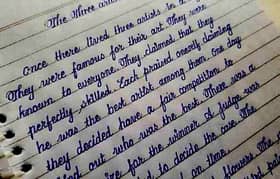 The Three artis
Once there lived three artists in a
They were famous for their art. They were
known to everyone. They claimed that they
perfectly skilled. Each praised oneself claiming
he was the best artist among them. One day
they decided have a fair competition to
find out who was the best. There was a
for the winner. A judge was
to decide the case. The
on time.
flowers. The